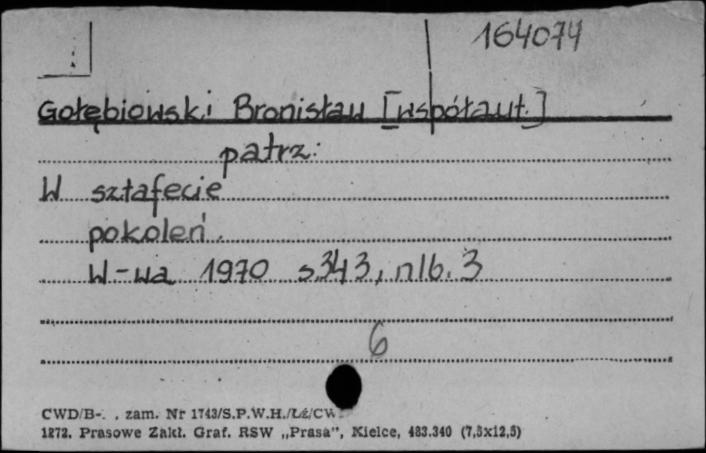 164074
Gołębiowski Bronisław [współaut.]
patrz:
W sztafecie
pokoleń.
W-wa 1970 s.343, nlb. 3
6
CWD/B-. . zam. Nr 1743/S.P.W.H./Łź/CW
1272. Prasowe Zakł. Graf. RSW „Prasa”, Kielce, 483.340 (7,5x12,5)